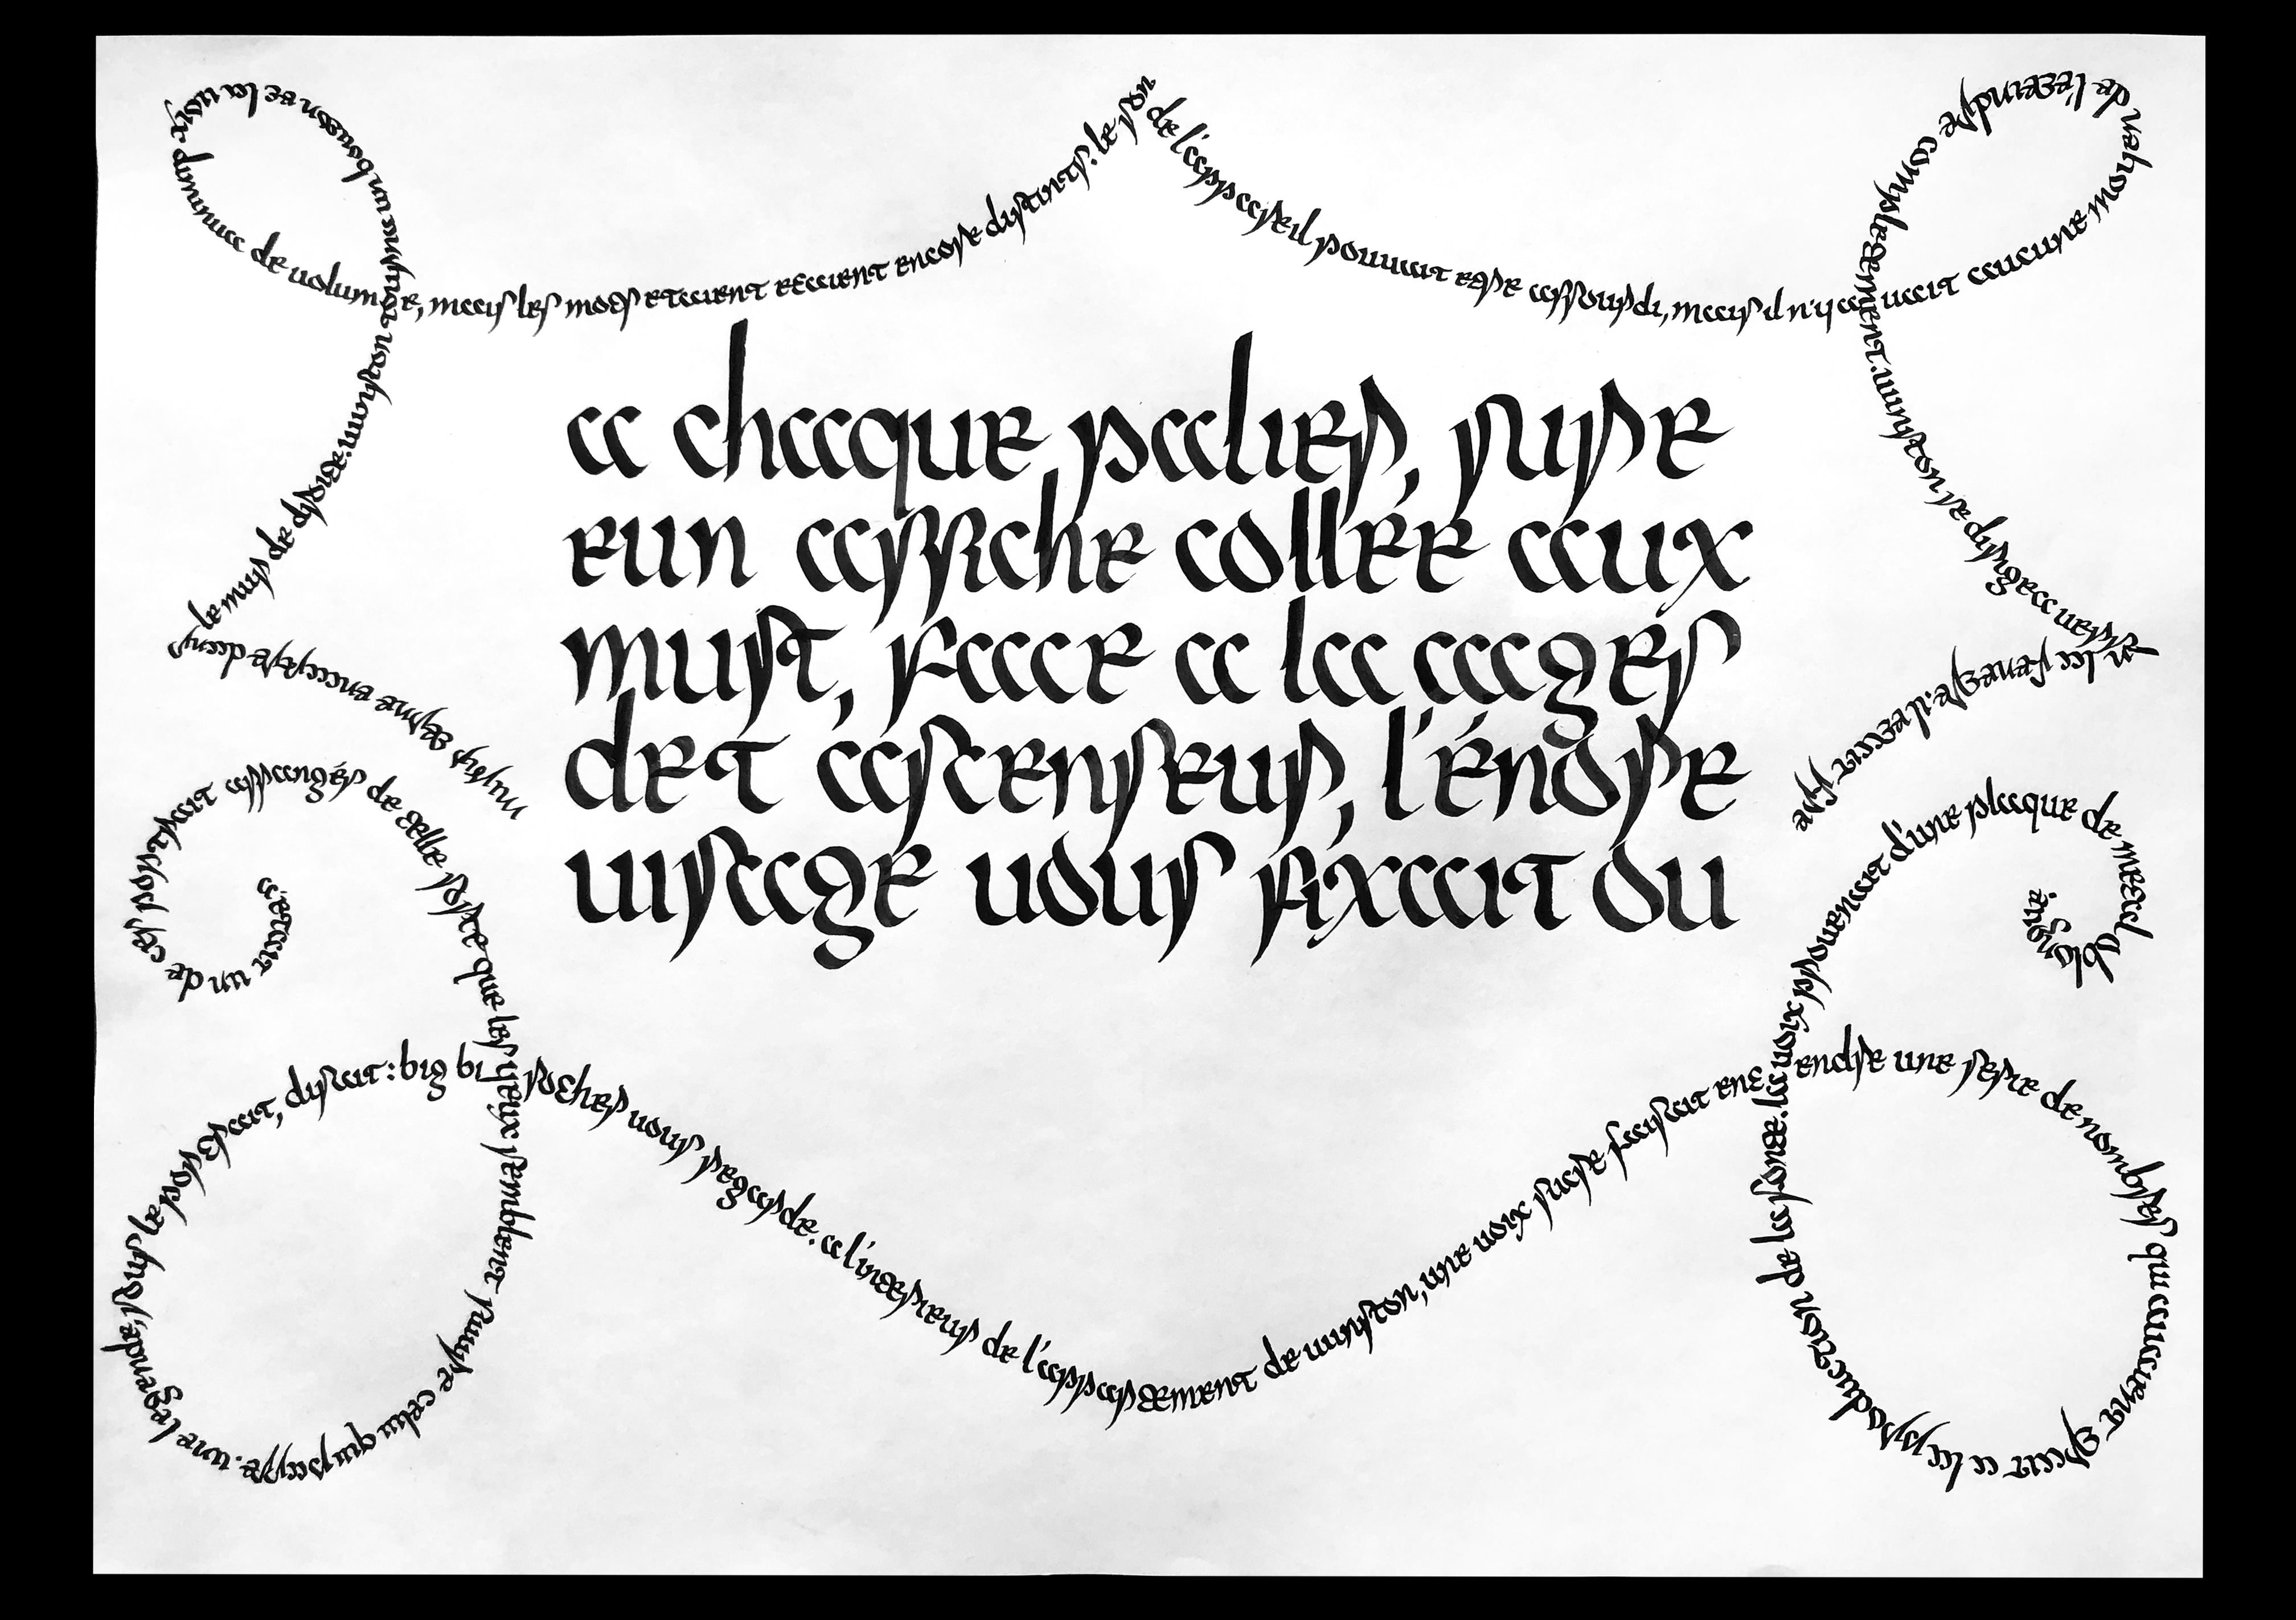 a chaque palier, sure
eun affiche collée aux
murt, face a la cages
det ascenseur, l'énore
visage vous fixait ou
c'etait un de ces portrait arrangés de telle sorte que les yeux semblent suivre celui qui passe. une legende, sous le portrait, disait: big brother vous regarde. a l'interieur de l'appartement de winston, une voix sucre faisait entendre une serie de nombres qui avaient trait a la production de la fonte. la voix provenait d'une plaque de metal oblongue.
miroir terne encastre dans le mur de droite. winston tourna un bouton et la voix diminua de volume, mais les mots etaient etaient encore distints. le son de l'appareil pouvait etre assourdi, mais il n'y a avait aucune moyen de l'eteindre completement. winston se dirigea vers la fenetre. il etait